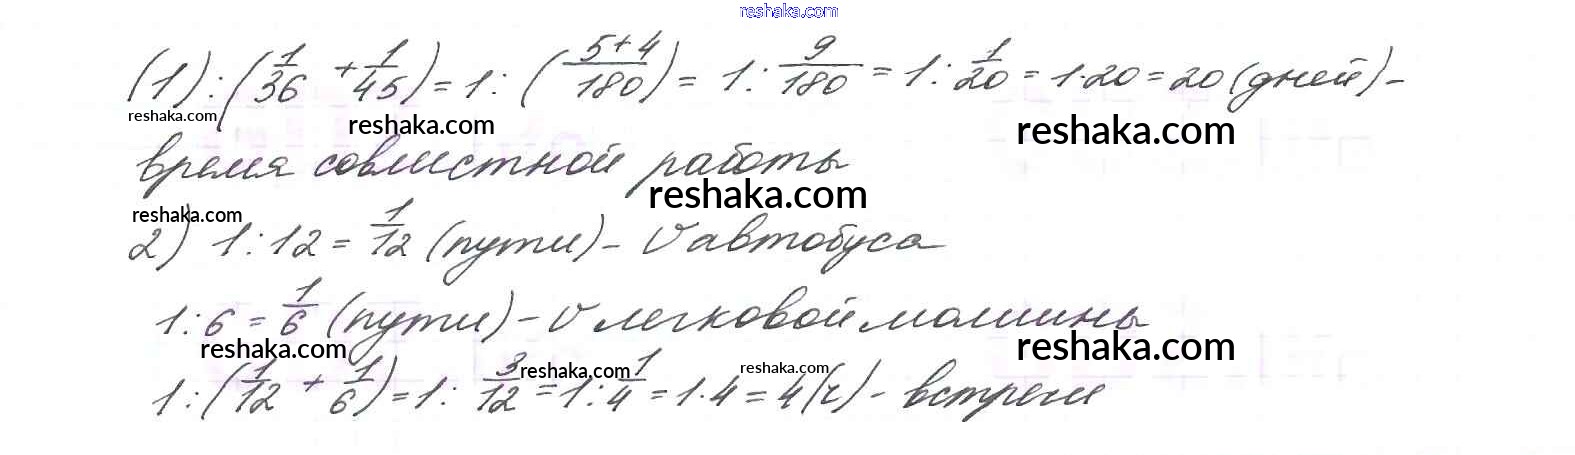 reshaka.com
(1) : (1/36 + 1/45) = 1 : (5+4/180) = 1 : 9/180 = 1 : 1/20 = 1·20 = 20 (дней) –
reshaka.com
reshaka.com
reshaka.com
время совместной работы
reshaka.com
reshaka.com
2) 1 : 12 = 1/12 (пути) – V автобуса
1 : 6 = 1/6 (пути) – V легковой машины
reshaka.com
reshaka.com
reshaka.com
reshaka.com
1 : (1/12 + 1/6) = 1 : 3/12 = 1 : 1/4 = 1·4 = 4 (ч) – встреча